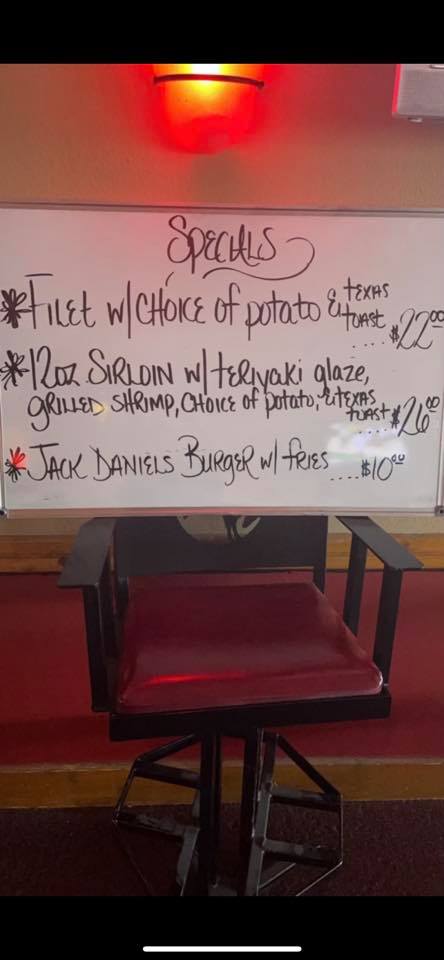 Specials
*Filet w/ CHOICE of potato & TEXAS
TOAST
....$22.00
*12oz SIRLOIN w/ teriyaki glaze,
GRILLED SHRIMP, CHOICE of potato, & TEXAS
TOAST
....$26.00
*JACK DANIELS BURGER w/ fries ....$10.00